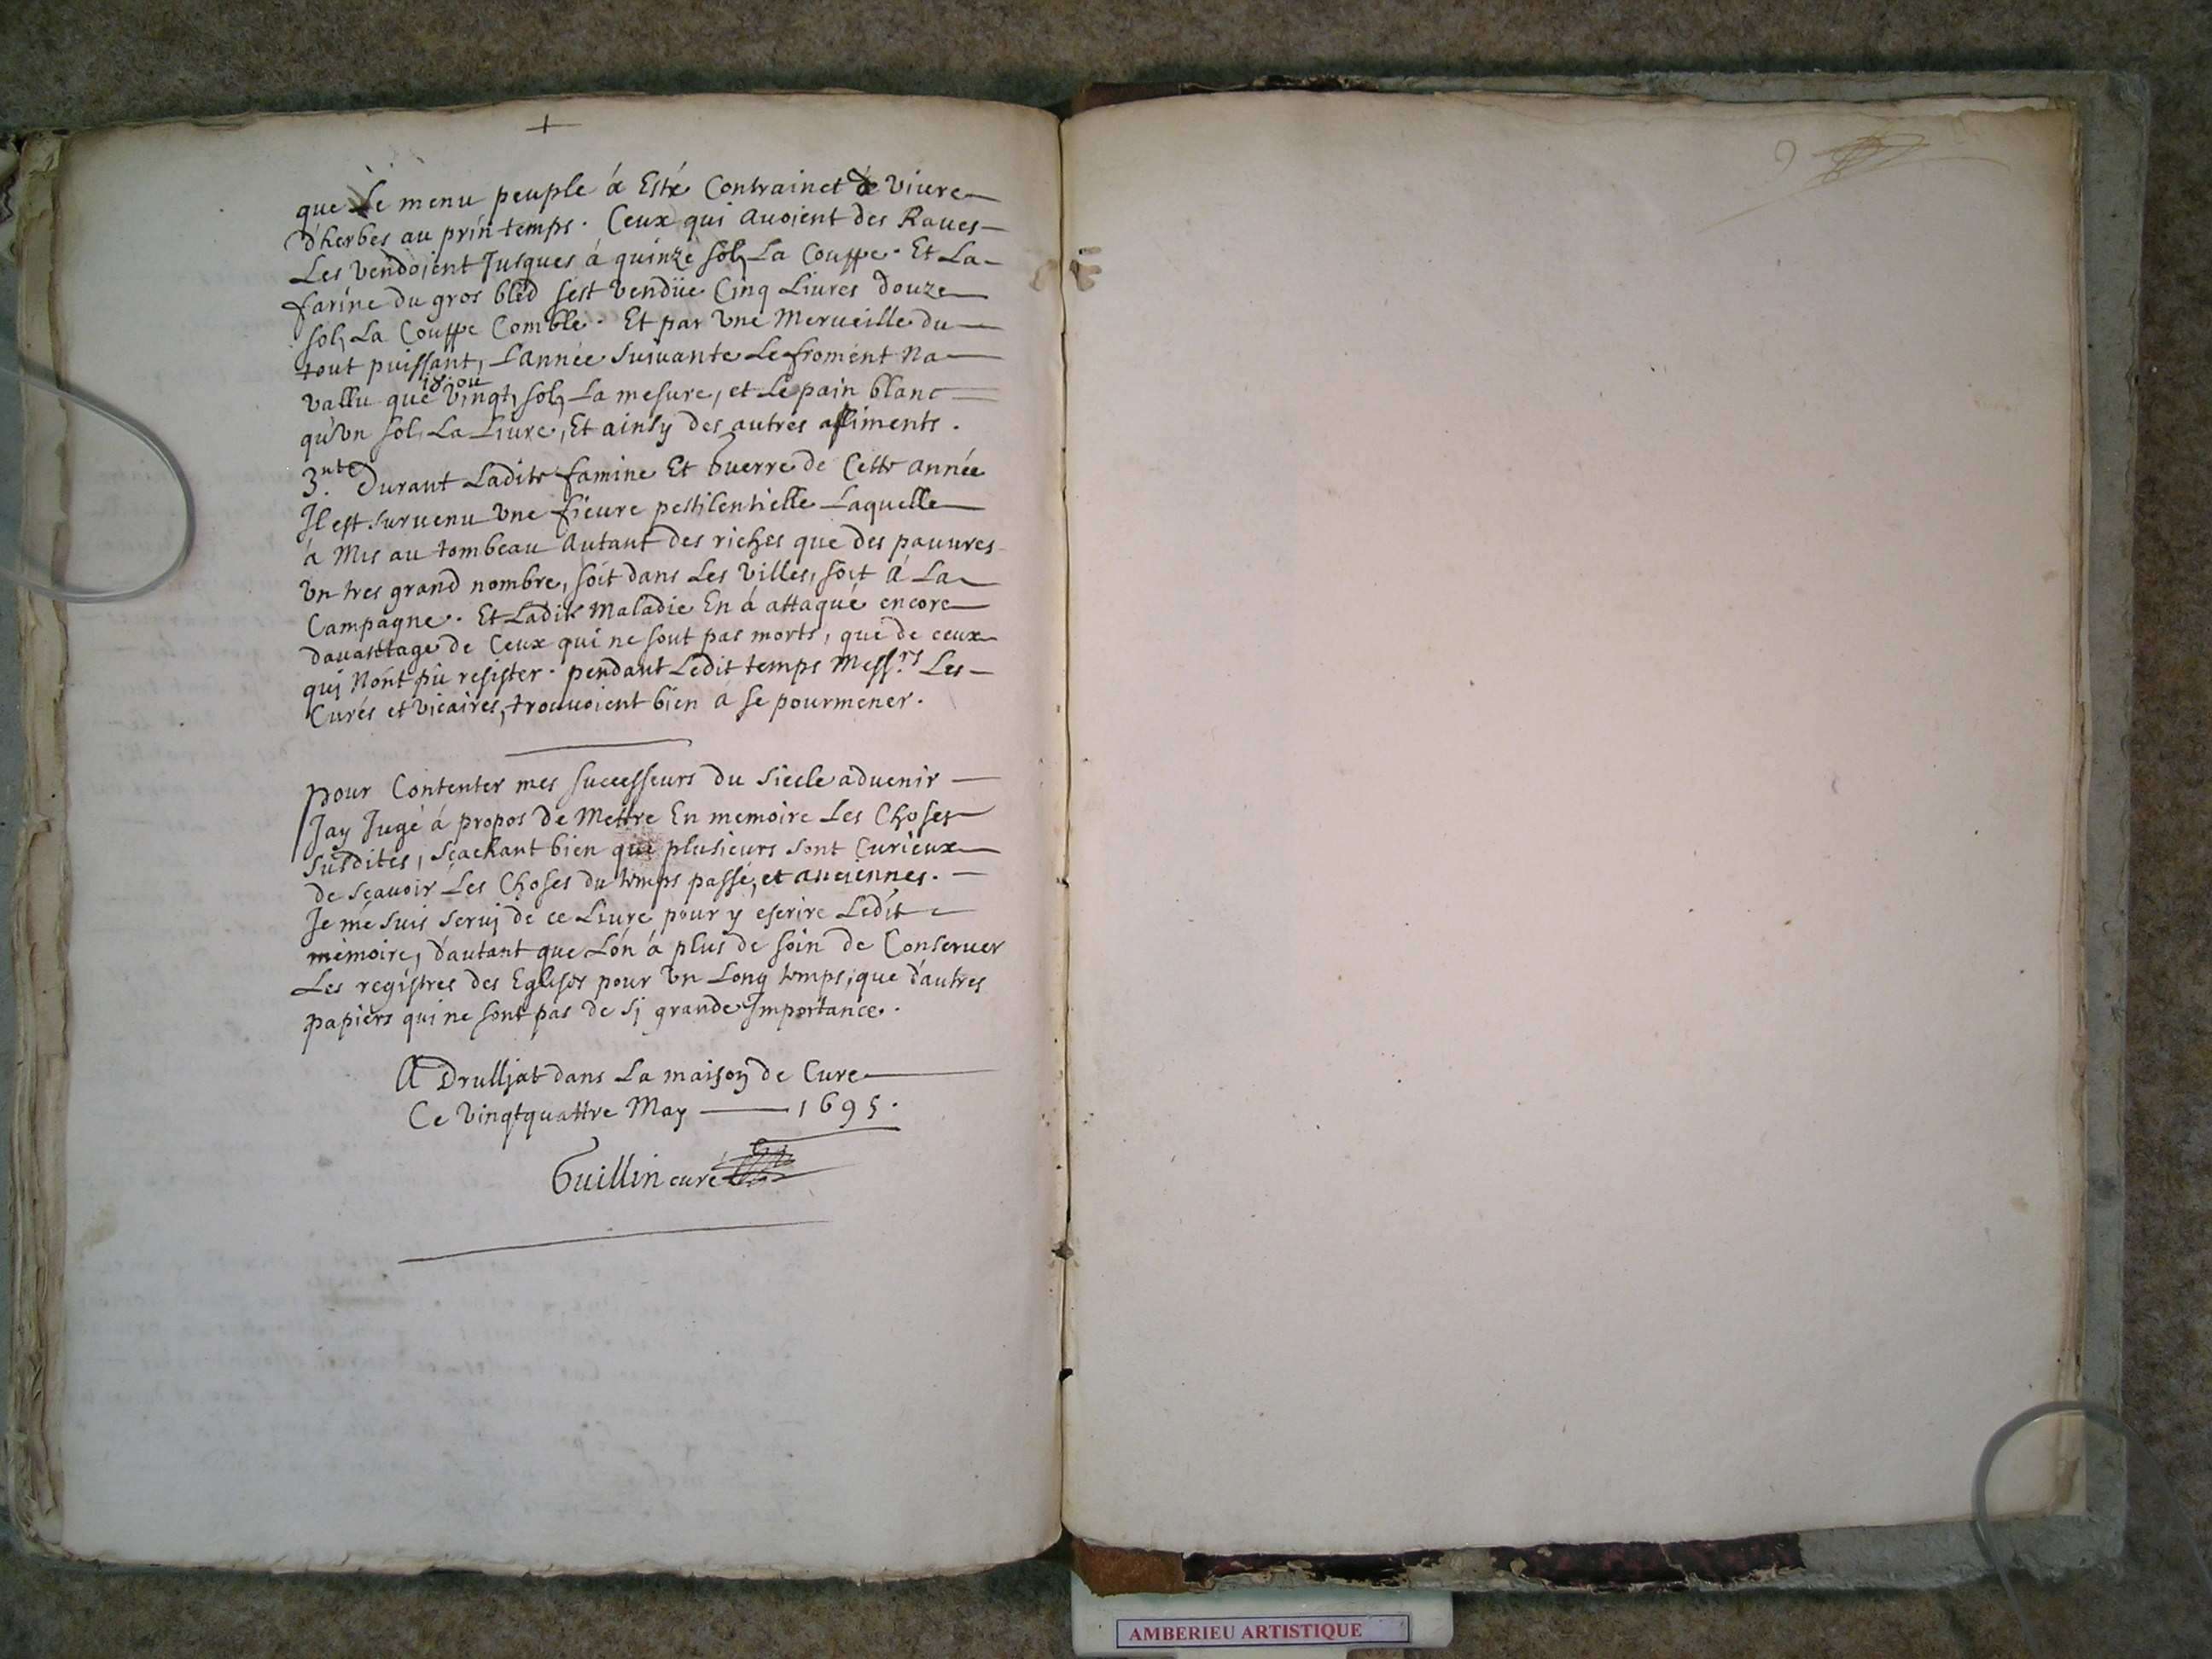 +
que Le menu peuple á Esté Contrainct de viure
d'herbes au printemps. Ceux qui Auoient des Raues
Les vendoient Jusques á quinze sols La Couppe. Et La
farine du gros bled s'est vendüe Cinq Liures douze
sols La Couppe Comble. Et par vne Merueille du
tout puissant, L'année Suiuante Le froment Na
18 ou
vallu que vingt sols La mesure, et Le pain blanc
qu'vn sol La Liure, Et ainsy des autres alliments.
3.nt Durant Ladite famine Et Guerre de Cette année
Il est suruenu vne fieure pestilentielle Laquelle
á Mis au tombeau Autant des riches que des pauures
vn tres grand nombre, soit dans Les villes, soit á La
Campagne. Et Ladite Maladie En á attaqué encore
dauantage de Ceux qui ne sont pas morts, que de ceux
qui N'ont pû resister. pendant Ledit temps Mess.rs Les
Curés et vicaires, trouuoient bien á se pourmener.
pour Contenter mes successeurs du siecle aduenir
J'ay Jugé á propos de Mettre En memoire Les Choses
susdites, sçachant bien que plusieurs sont Curieux
de sçauoir Les Choses du temps passé, et anciennes.
Je me suis seruj de ce Liure pour y escrire Ledit
mémoire, d'autant que L'on á plus de soin de Conseruer
Les registres des Eglises pour vn Long temps, que d'autres
papiers qui ne sont pas de sj grande Importance.
A Drulljat dans La maison de Cure
Ce vingtquattre May 1695.
Guillin curé
9
AMBERIEU ARTISTIQUE